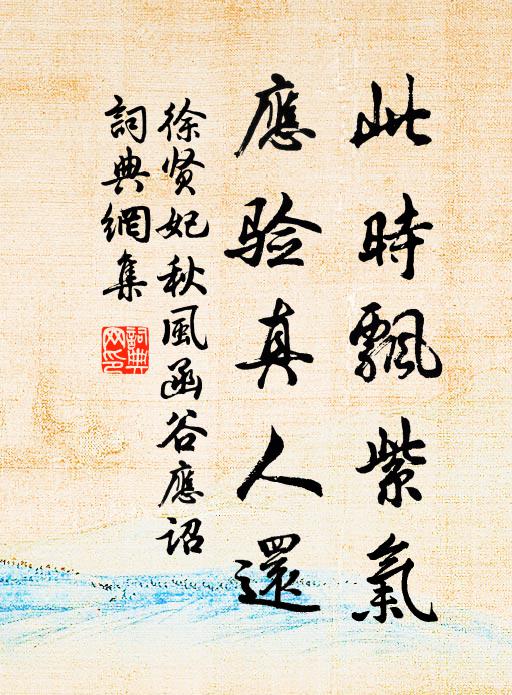 此時飄紫氣
應验真人還
徐贤妃秋風函谷應诏
詞典網集
詞典
网印